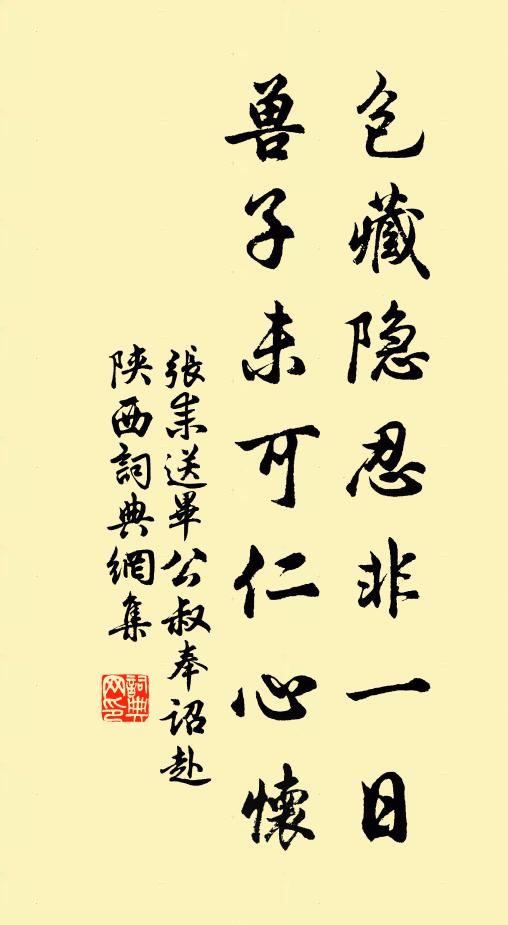 包藏隐忍非一日
兽子未可仁心懷
張耒送畢公叔奉詔赴
陝西詞典網集
詞典网印